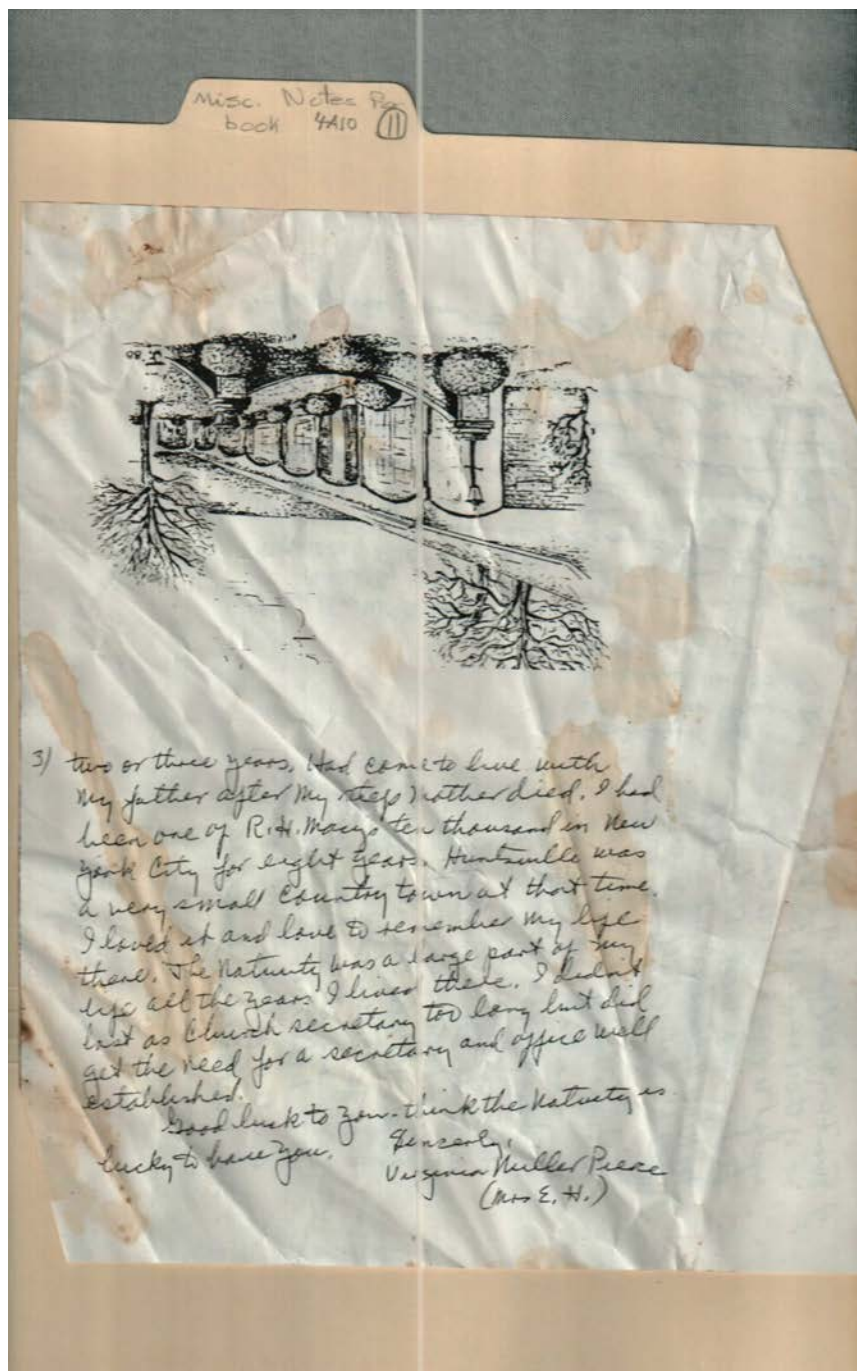 Misc. Notes For
book 4A10 11
J. '80
3) two or three years. Had come to live with
my father after my step mother died. I had
been one of R.H. Macys ten thousand in New
York City for eight years. Huntsville was
a very small country town at that time.
I loved it and love to remember my life
there. The Nativity was a large part of my
life all the years I lived there. I didn't
last as Church secretary too long but did
get the need for a secretary and office well
established.
Good luck to you - think the Nativity is
lucky to have you.
Sincerely,
Virginia Miller Pierce
(Mrs E. H.)